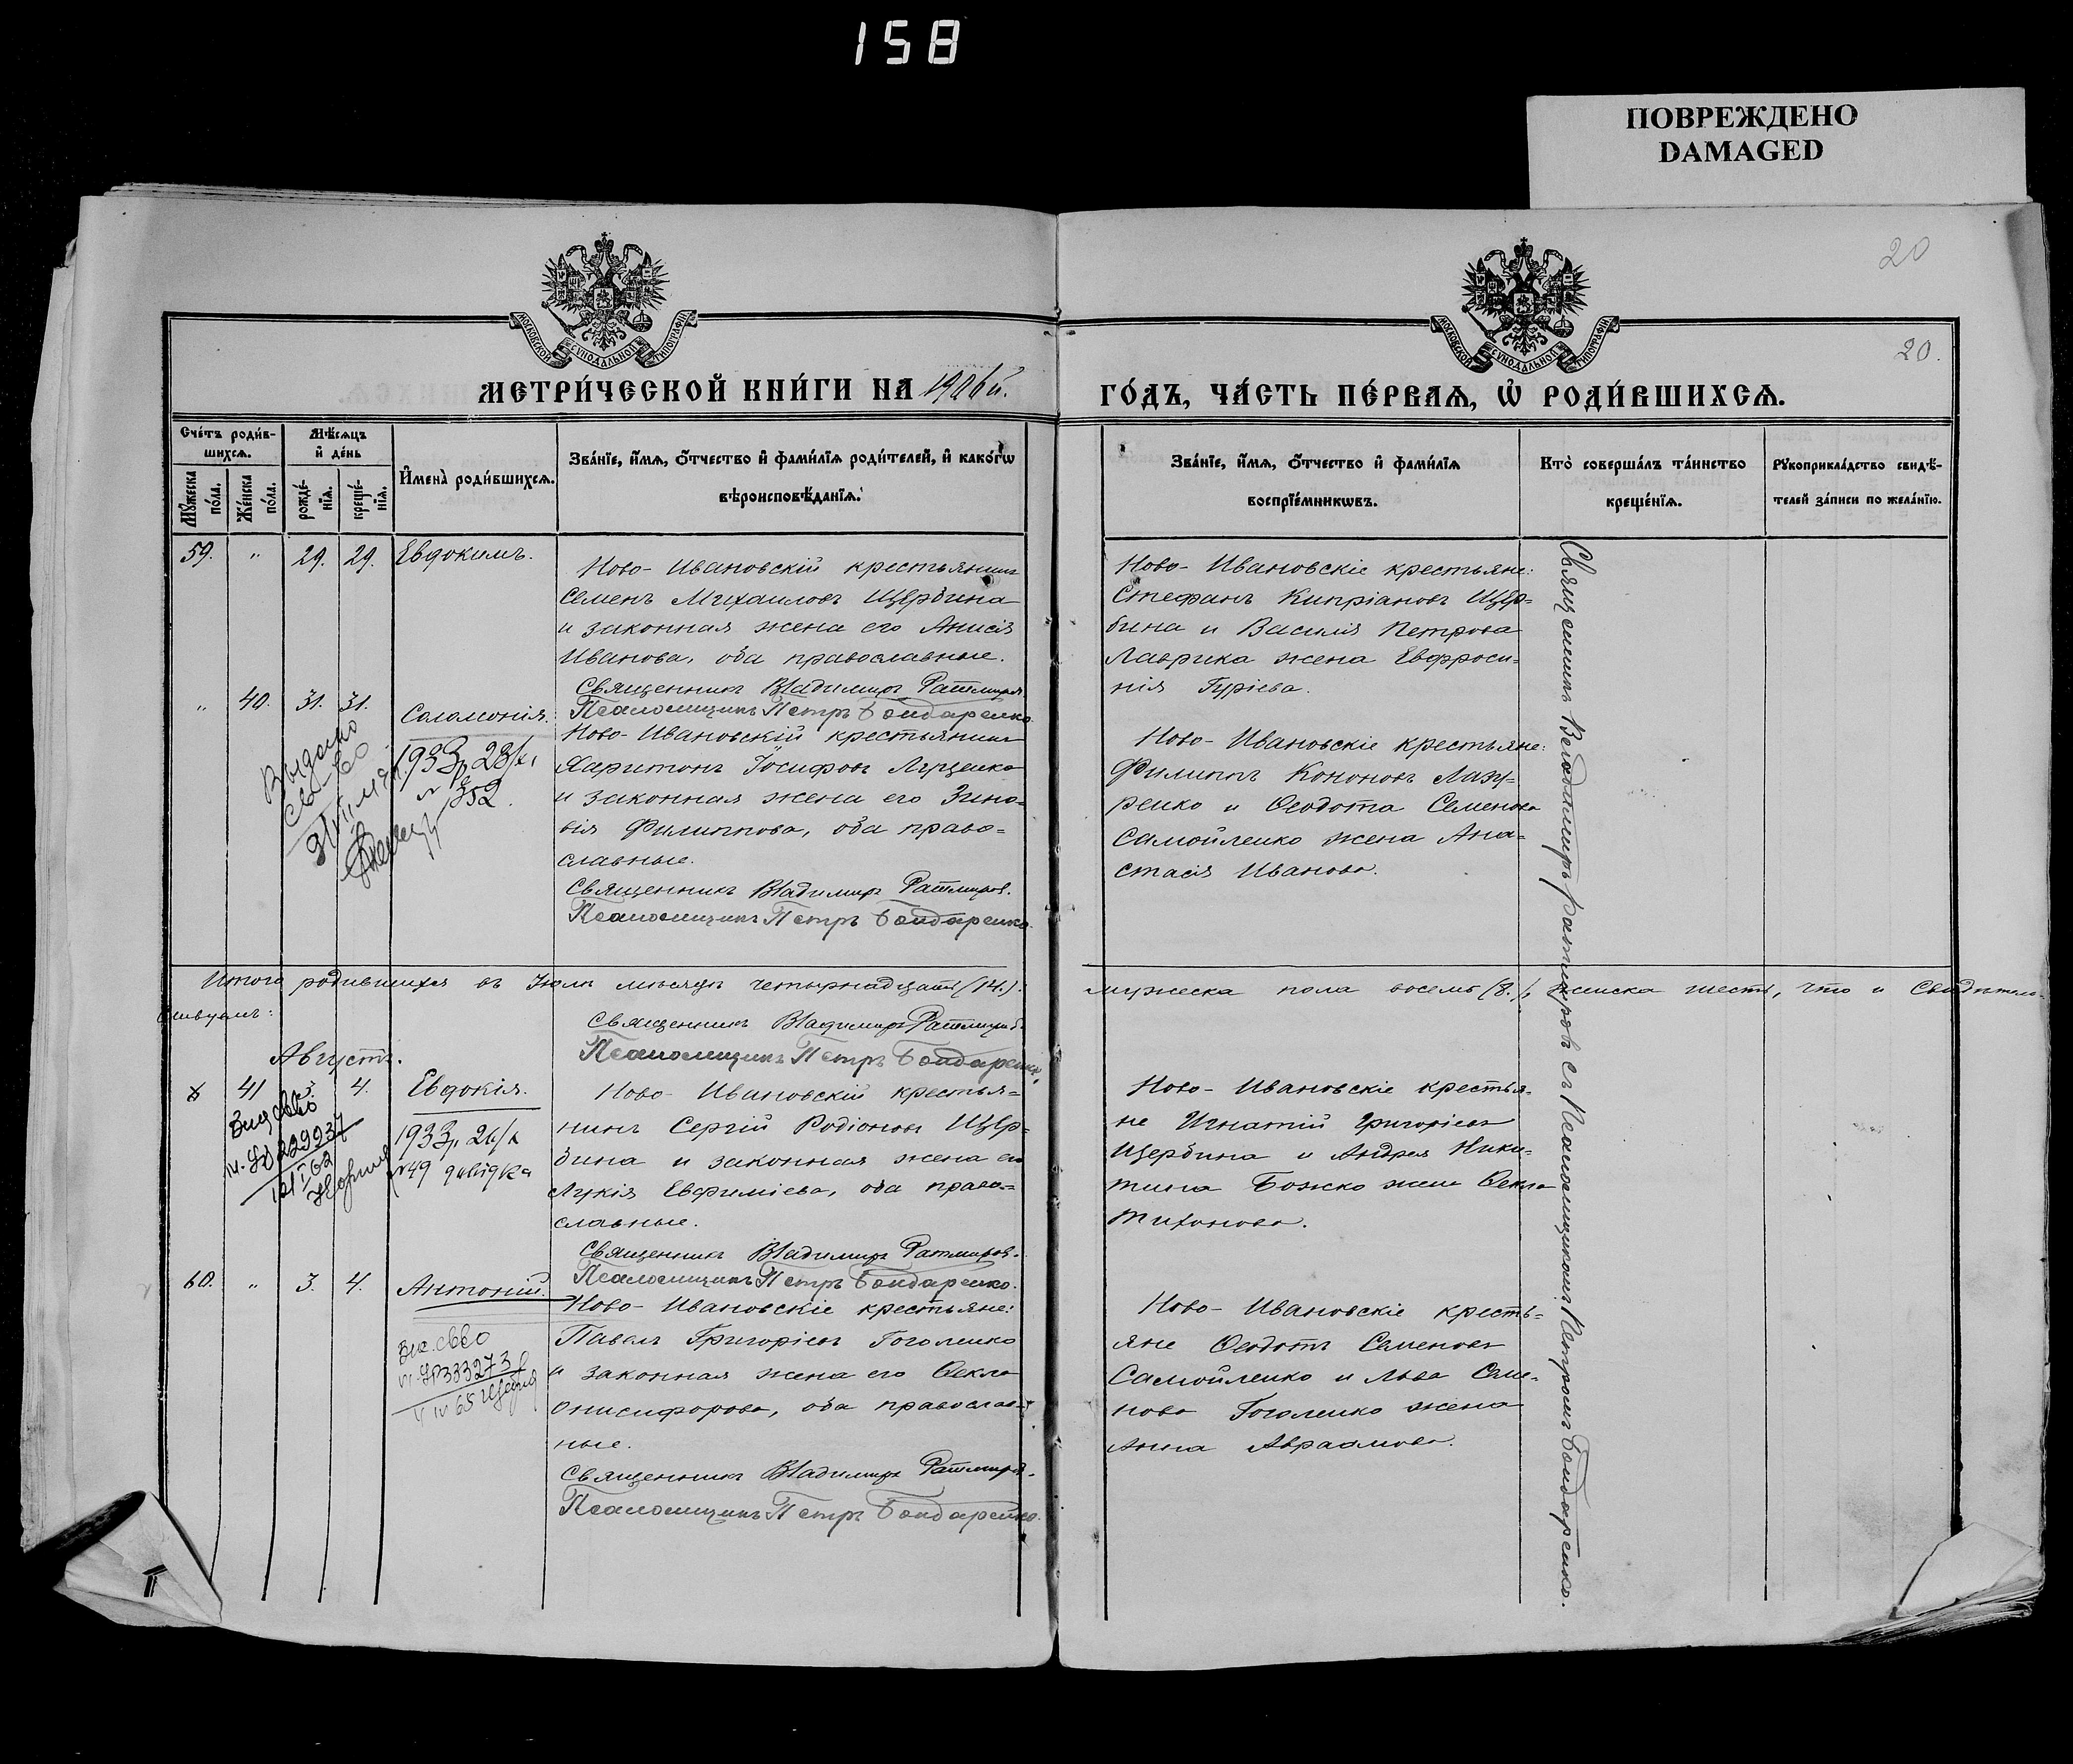 158
ПОВРЕЖДЕНО
DAMAGED
20
20.
МОСКОВСКОЙ СУНОДАЛЬНОЙ ТИПОГРАФІИ
МОСКОВСКОЙ СУНОДАЛЬНОЙ ТИПОГРАФІИ
МЕТРИ́ЧЕСКОЙ КНИ́ГИ НА 1906й.
ГО́ДЪ, ЧА́СТЬ ПЕ́РВАѦ, Ѡ҆ РОДИ́ВШИХСѦ.
Сче́тъ роди́в-
шихсѧ.
Мꙋ́жеска по́ла.
Же́нска по́ла.
Мѣ́сѧцъ
и҆ де́нь
рожде́-
нїѧ.
креще́-
нїѧ.
И҆мена̀ роди́вшихсѧ.
Зва́нїе, и҆́мѧ, ѻ҆́тчество и҆ фами́лїѧ роди́телей, и҆ како́гѡ
вѣроисповѣ́данїѧ.
Зва́нїе, и҆́мѧ, ѻ҆́тчество и҆ фами́лїѧ
воспрїе́мникѡвъ.
Кто̀ соверша́лъ та́инство
креще́нїѧ.
Рꙋкоприкла́дство свидѣ́-
телей за́писи по жела́нїю.
59. " 29. 29. Евдокимъ.
Ново-Ивановскій крестьянинъ
Семенъ Михаиловъ Щер­бина
и законная жена его Анисія
Иванова, оба православные.
Священникъ Владимиръ Ратмировъ
Псаломщикъ Петръ Бондаренко.
Ново-Ивановскіе крестьяне:
Стефанъ Кипріановъ Щер=
бина и Василія Петрова
Лаврика жена Евфроси=
нія Гуріева.
" 40. 31. 31. Саломонія.
Выдано
св-во
1933р 23/х
№ 352.
Ново-Ивановскій крестьянинъ
Харитонъ Іосифовъ Луценко
и законная жена его Зино=
вія Филиппова, оба право=
славные.
Священникъ Владимиръ Ратмировъ.
Псаломщикъ Петръ Бондаренко.
Ново-Ивановскіе крестьяне:
Филиппъ Кононовъ Лазу=
ренко и Ѳеодота Семенова
Самойленко жена Ана=
стасія Иванова.
Священникъ Владимиръ Ратмировъ съ Псаломщикомъ Петромъ Бондаренко.
Итого родившихся въ Іюлѣ мѣсяцѣ четырнадцать (14.)
мужеска пола восемь (8.), женска шесть, что и свидѣтель-
ствуемъ:
Священникъ Владимиръ Ратмировъ
Псаломщикъ Петръ Бондаренко.
Августъ.
41 4. Евдокія.
1933р 26/х
№49 довідка
Ново-Ивановскій крестья=
нинъ Сергій Родіоновъ Щер=
бина и законная жена его
Лукія Евфиміева, оба право=
славные.
Священникъ Владимиръ Ратмировъ.
Псаломщикъ Петръ Бондаренко.
Ново-Ивановскіе крестья-
не Игнатій Григоріевъ
Щербина и Андрея Ники=
тина Божко жена Ѳекла
Тихонова.
60. " 3. 4. Антоній.
Ново-Ивановскіе крестьяне:
Павелъ Григоріевъ Гоголенко
и законная жена его Ѳекла
Онисифорова, оба православ=
ные.
Священникъ Владимиръ Ратмировъ.
Псаломщикъ Петръ Бондаренко.
Ново-Ивановскіе кресть=
яне Ѳеодотъ Семеновъ
Самойленко и Льва Семе-
нова Гоголенко жена
Анна Авраамова.